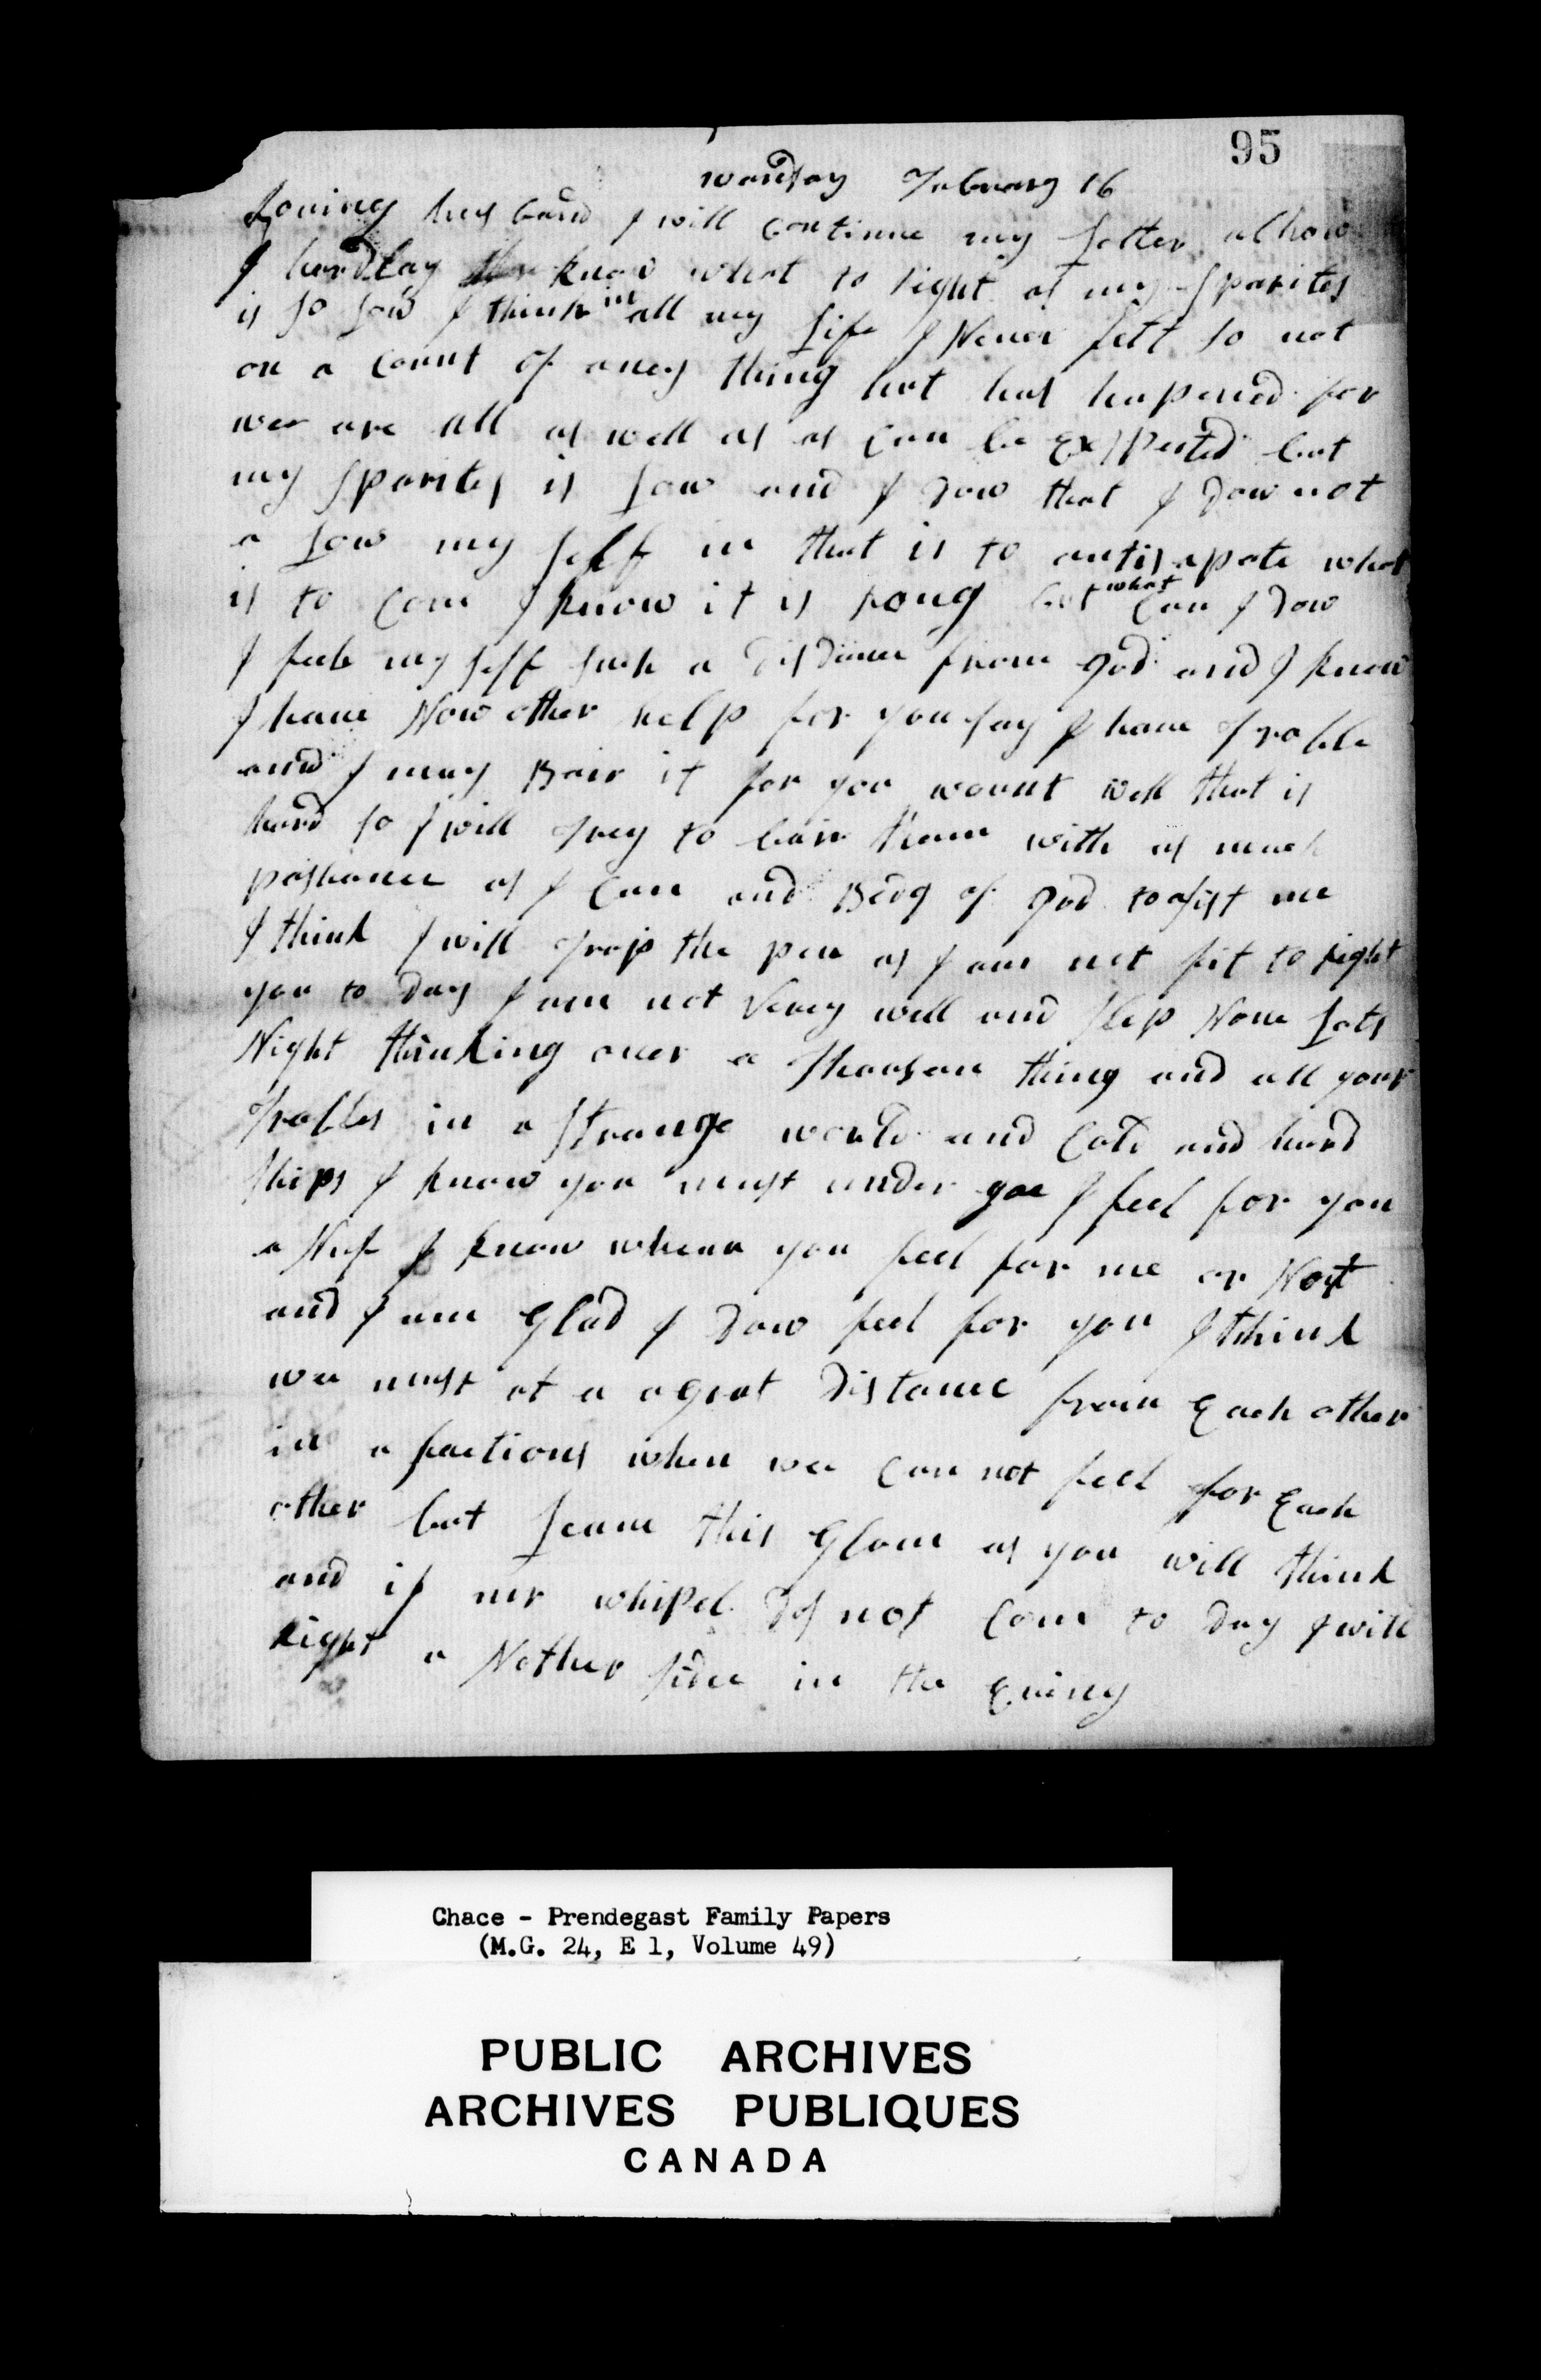 95
monday February 16
Loving husband I will continue my Letter alhow
I hardlay know what to right as my sparites
is so Low I think in all my Life I Never felt so not
on a count of aney thing hot has hapened for
wee are all as well as as Can be Exspected but
my sparites is Low and I dow that I dow not
a Low my self in that is to antisapate what
is to Come I know it is rong but what Can I dow
I feele my self such a disdance from god and I know
I have Now other help for you say I have Troble
and I may Bair it for you wount well that is
hard so I will Trey to bair them with as much
pashance as I Can and Beag of god to asist me
I think I will Trop the pen as I am not fit to right
you to day I am not Verey well and slep None Lats
Night thinking over a Thousan thing and all your
Trobles in a strange world and Cold and hard
ships I know you must under goe I feel for you
a Nuf I know wheare you feel for me or Not
and I am Glad I dow feel for you I think
wee must at a agrat distance from Each other
in a factions when wee Can not feel for Each
other but Leave this Glome as you will think
and if mr whipel dos not Come to day I will
right a Nother sidee in the Eveing
Chace - Prendegast Family Papers
(M.G. 24, E 1, Volume 49)
PUBLIC ARCHIVES
ARCHIVES PUBLIQUES
CANADA